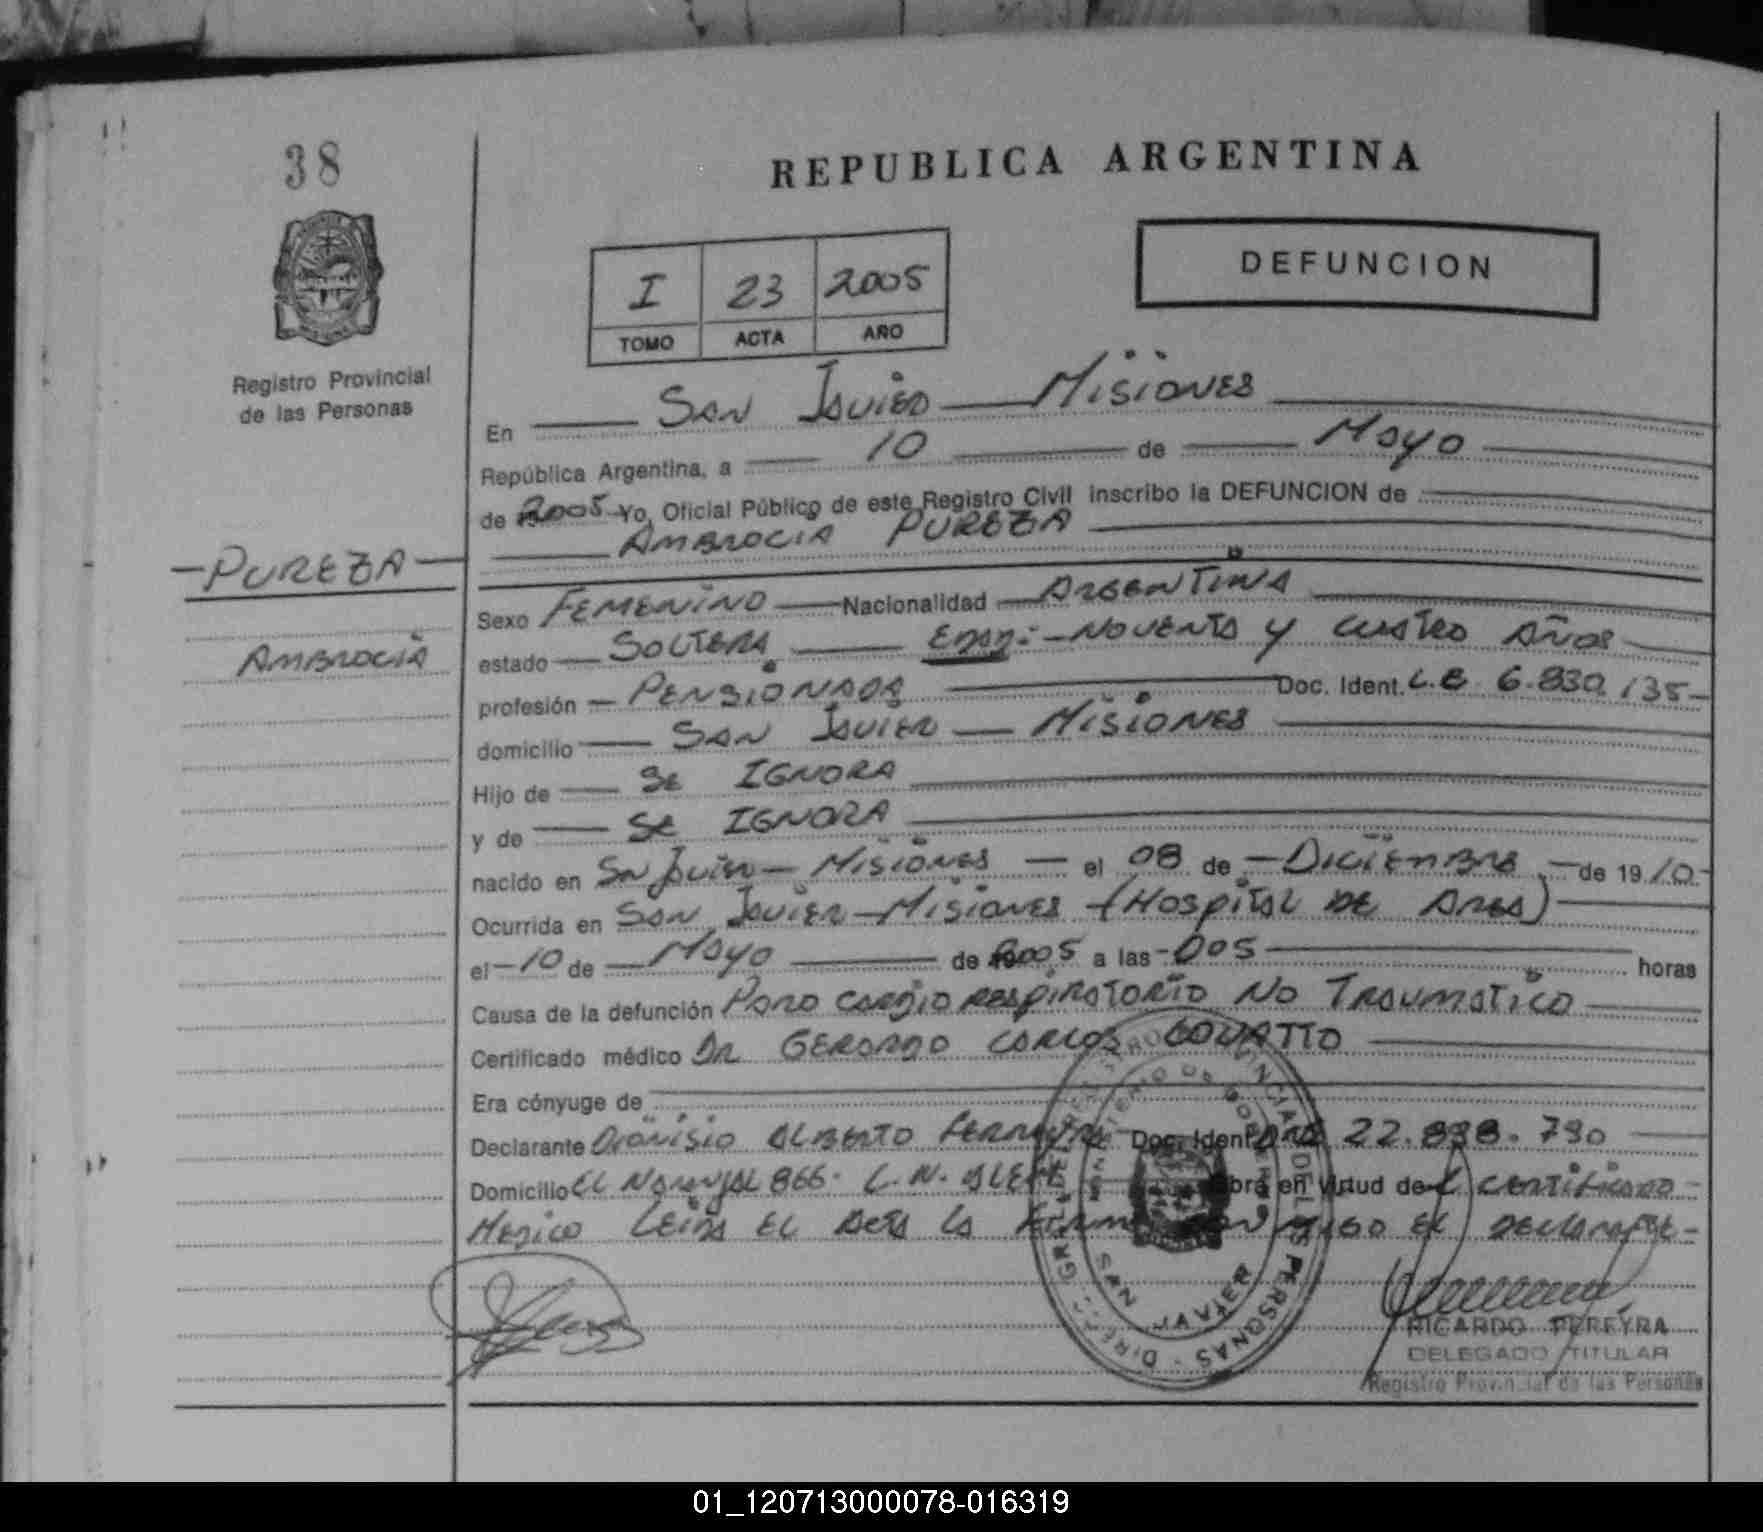 38
REPUBLICA ARGENTINA
DEFUNCION
I 23 2005
TOMO ACTA AÑO
Registro Provincial
de las Personas
En San Javier Misiones
República Argentina, a 10 de Mayo
de 2005 Yo, Oficial Público de este Registro Civil inscribo la DEFUNCION de
AMBROCIA PUREZA
PUREZA
AMBROCIA
Sexo FEMENINO Nacionalidad ARGENTINA
estado SOLTERA EDAD: NOVENTA y CUATRO AÑOS
profesión PENSIONADA Doc. Ident. L.C 6.830.135
domicilio SAN JAVIER MISIONES
Hijo de SE IGNORA
y de SE IGNORA
nacido en San Javier Misiones el 08 de DICIEMBRE de 1910
Ocurrida en SAN JAVIER MISIONES (HOSPITAL DE AREA)
el 10 de MAYO de 2005 a las DOS horas
Causa de la defunción PARO CARDIO RESPIRATORIO NO TRAUMATICO
Certificado médico DR GERARDO CARLOS LOVATTO
Era cónyuge de
Declarante DIONISIO ALBERTO FERREYRA Doc. Ident. DNI 22.898.790
Domicilio EL NARANJAL 866. L.N. ALEM Obra en virtud del CERTIFICADO
MEDICO LEIDA EL ACTA LA EL DECLARANTE
DIREC. GRAL. DEL REGISTRO PROVINCIAL DE LAS PERSONAS
MINISTERIO DE GOBIERNO
SAN JAVIER
RICARDO PEREYRA
DELEGADO TITULAR
Registro Provincial de las Personas
01_120713000078-016319